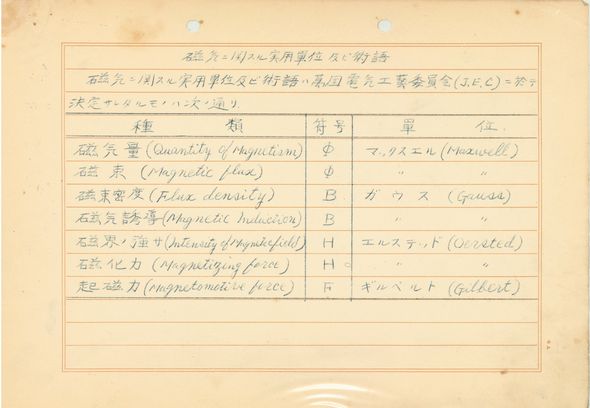 磁気ニ関スル実用單位及ビ術語
磁気ニ関スル実用單位及ビ術語ハ萬国電気工藝委員会(J.E.C)ニ於テ
決定サレタルモノハ次ノ通リ.
種 類 符号 單 位.
磁気量(Quantity of Magnetism) Φ マックスエル(Maxwell)
磁束(Magnetic flux) Φ 〃 〃
磁束密度(Flux density) B ガウス(Gauss)
磁気誘導(Magnetic Induction) B 〃 〃
磁界ノ強サ(Intensity of Magneticfield) H エルステッド(Oersted)
磁化力(Magnetizing force) H 〃 〃
起磁力(Magnetomotive force) F ギルベルト(Gilbert)